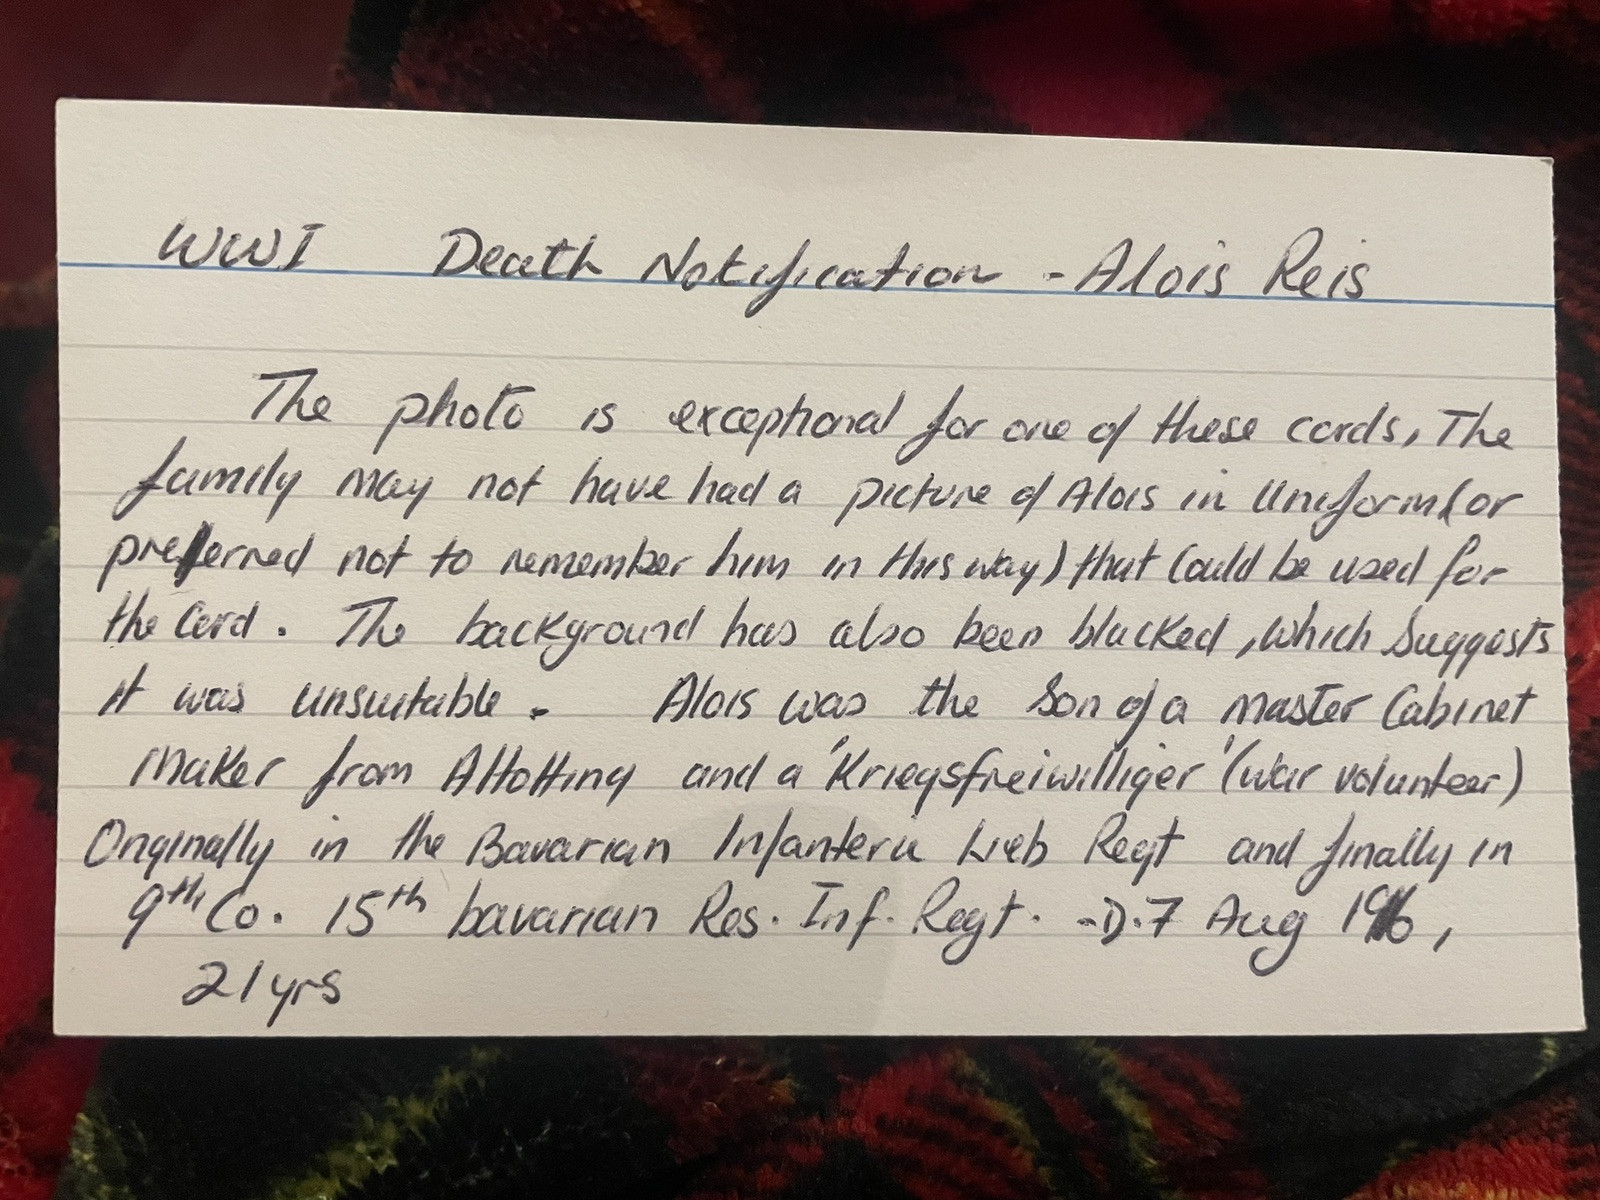 WWI Death Notification - Alois Reis
The photo is exceptional for one of these cards, The
family may not have had a picture of Alois in Uniform (or
preferred not to remember him in this way) that Could be used for
the Card. The background has also been blacked, which Suggests
it was unsuitable. Alois was the Son of a Master Cabinet
Maker from Altötting and a 'Kriegsfreiwilliger' (war volunteer)
Originally in the Bavarian Infanterie Lieb Regt and finally in
9th Co. 15th bavarian Res. Inf. Regt. -D.7 Aug 1916,
21 yrs